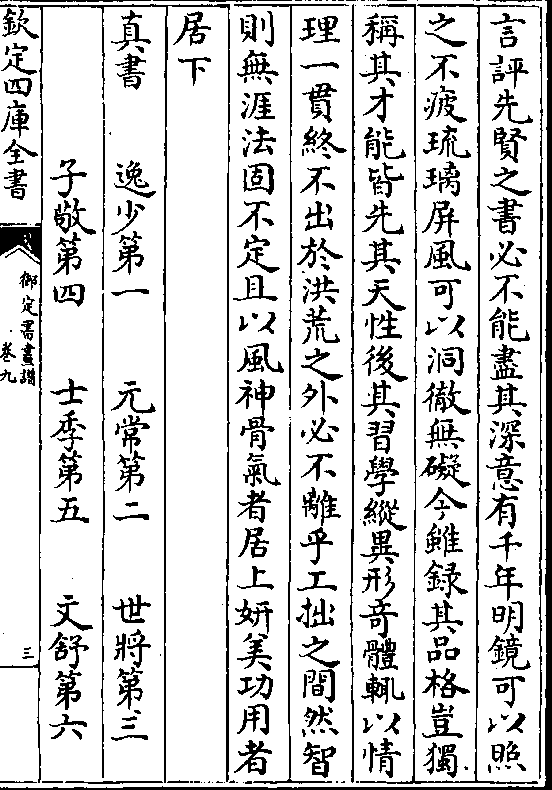 言評先賢之書必不能盡其深意有千年明鏡可以照
之不疲琉璃屏風可以洞徹無礙今雖錄其品格豈獨
稱其才能皆先其天性後其習學縱異形奇體輒以情
理一貫終不出於洪荒之外必不離乎工拙之間然智
則無涯法固不定且以風神骨氣者居上妍美功用者
居下
真書　逸少第一　元常第二　世將第三
子敬第四　士季第五　文舒第六
欽定四庫全書
御定書畫譜
卷九
三